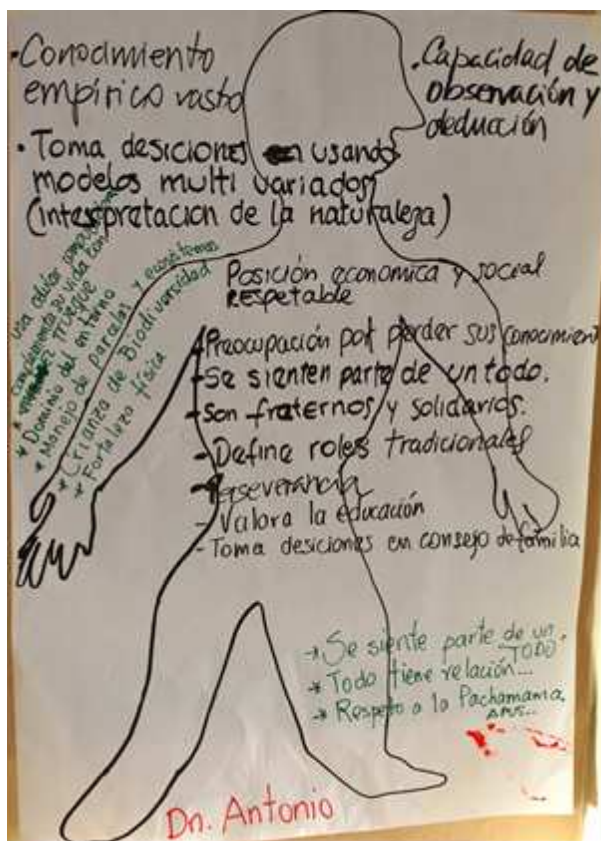 · Conocimiento
empírico vasto
· Capacidad de
observación y
deducción
· Toma desiciones en usando
modelos multi variados
(interpretacion de la naturaleza)
usa celular
complementa su vida con
trueque
* Dominio del entorno
* Manejo de parcelas y ecosistemas
* Crianza de Biodiversidad
* Fortaleza física
Posición economica y social
respetable
- Preocupación por perder sus conocimien
- Se sienten parte de un todo.
- Son fraternos y solidarios.
- Define roles tradicionales
- Perseverancia
- Valora la educación
- Toma desiciones en consejo de familia
* Se siente parte de un
TODO.
* Todo tiene relación...
* Respeto a la Pachamama,
APUS...
Dn. Antonio